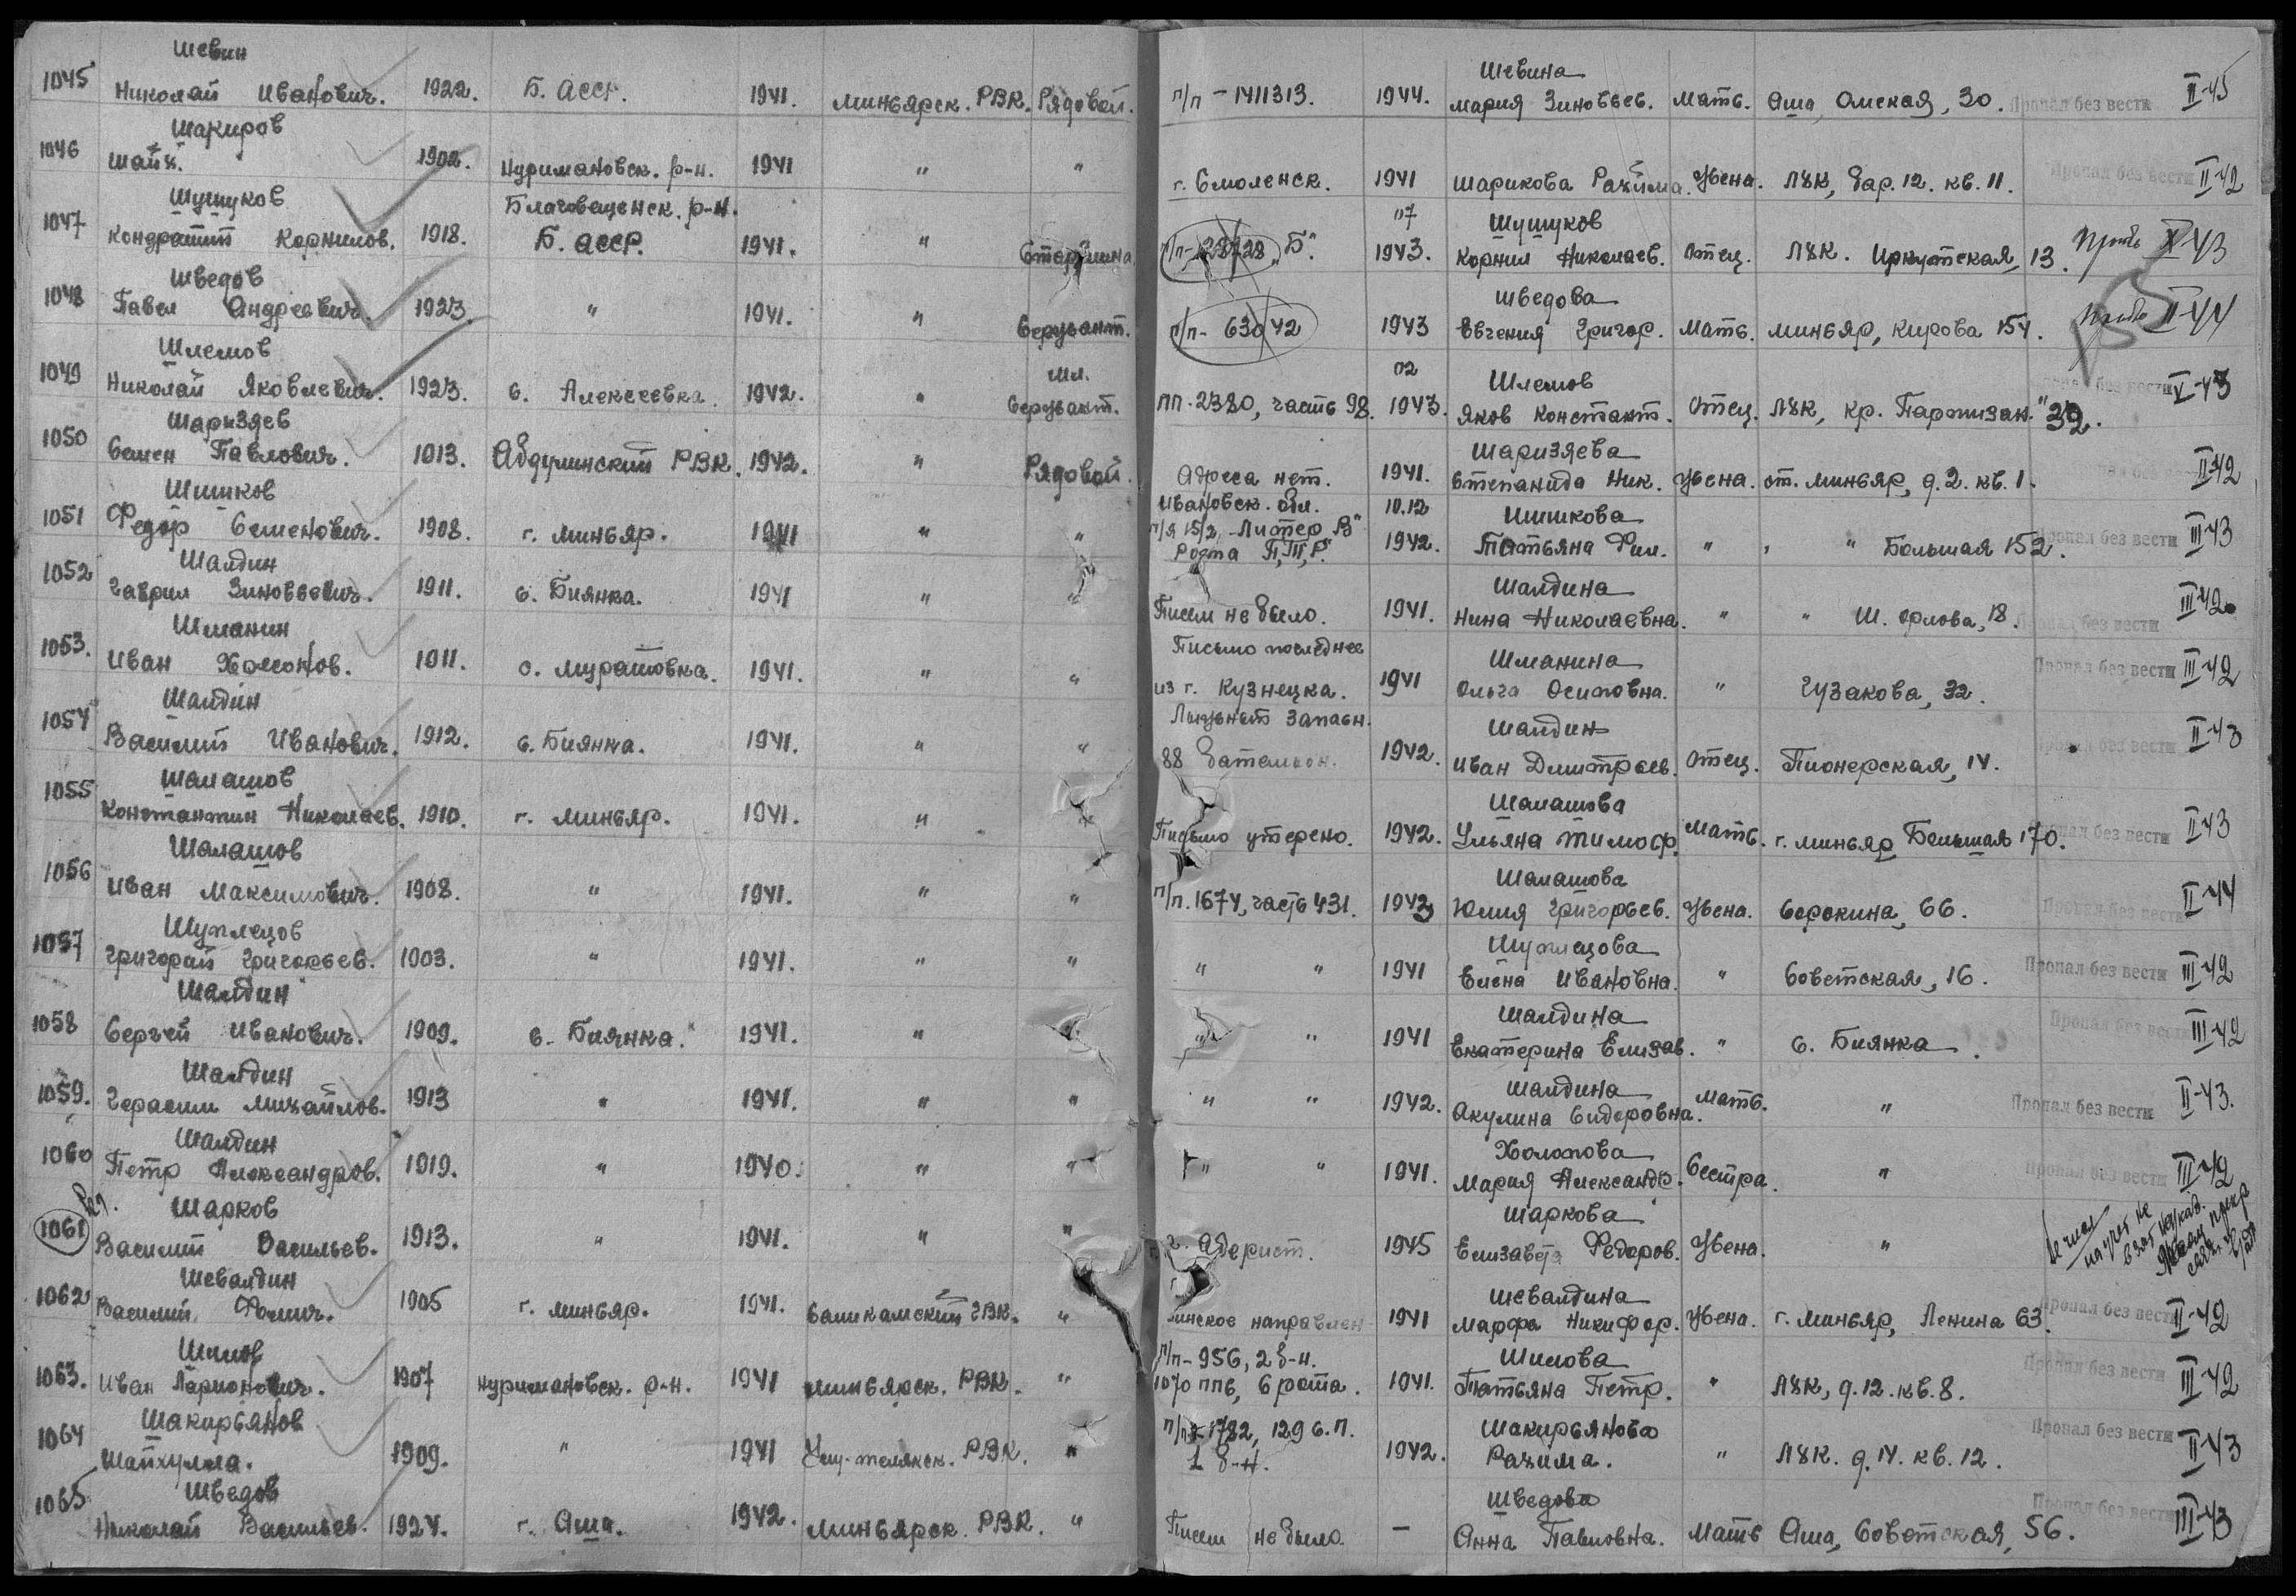 Шевин Шевина
1045 Николай Иванович. 1922. Б. АССР. 1941. Миньярск. РВК. Рядовой. п/п - 1411313. 1944. Мария Зиновьев. Мать. Аша, Омская, 30. Пропал без вести II-45
Шакиров
1046 Шайх. 1902. Нуримановск. р-н. 1941 " " г. Смоленск. 1941 Шарикова Рахима. Жена. ЛХК, бар. 12. кв. 11. Пропал без вести II-42
Шушуков Благовещенск. р-н. 07 Шушуков
1047 Кондратий Корнилов. 1918. Б. АССР. 1941. " Старшина п/п - 28728 „Б". 1943. Корнил Николаев. Отец. ЛХК. Иркутская, 13. X-43
Шведов Шведова
1048 Павел Андреевич. 1923. " 1941. " Сержант. п/п - 63042 1943 Евгения Григор. Мать. Миньяр, Кирова 154. II-44
Шлемов Мл. 02 Шлемов
1049 Николай Яковлевич. 1923. с. Алексеевка. 1942. " Сержант. ПП. 2380, часть 98. 1943. Яков Констант. Отец. ЛХК, Кр. Партизан." 39. без вести V-43
Шаризяев Шаризяева
1050 Семен Павлович. 1913. Абдулинский РВК. 1942. " Рядовой. Адреса нет. 1941. Степанида Ник. Жена. ст. Миньяр, д. 2. кв. 1. II-42
Шишков Ивановск. обл. 10.12 Шишкова
1051 Федор Семенович. 1908. г. Миньяр. 1941 " " п/я 15/2, Литер „В" Рота П,Т,Р. 1942. Татьяна Фил. " " Большая 152. Пропал без вести III-43
Шалдин Шалдина
1052 Гаврил Зиновьевич. 1911. с. Биянка. 1941 " " Писем не было. 1941. Нина Николаевна. " " Ш. Орлова, 18. Пропал без вести III-42
Шманин Письмо последнее Шманина
1053. Иван Харитонов. 1911. с. Муратовка. 1941. " " из г. Кузнецка. 1941 Ольга Осиповна. " Гузакова, 32. Пропал без вести III-42
Шалдин запасн. Шалдин
1054 Василий Иванович. 1912. с. Биянка. 1941. " " 88 батальон. 1942. Иван Дмитраев. Отец. Пионерская, 14. Пропал без вести II-43
Шалашов Шалашова
1055 Константин Николаев. 1910. г. Миньяр. 1941. " " Письмо утерено. 1942. Ульяна Тимоф. Мать. г. Миньяр Большая 170. Пропал без вести II-43
Шалашов Шалашова
1056 Иван Максимович. 1908. " 1941. " " п/п. 1674, часть 431. 1942 Юлия Григорьев. Жена. Сорокина, 66. Пропал без вести II-44
Шуплецов Шуплецова
1057 Григорий Григорьев. 1903. " 1941. " " " " 1941 Елена Ивановна. " Советская, 16. Пропал без вести III-42
Шалдин Шалдина
1058 Сергей Иванович. 1909. с. Биянка. 1941. " " " 1941 Екатерина Елизав. " с. Биянка. Пропал без вести III-42
Шалдин Шалдина
1059. Герасим Михайлов. 1913 " 1941. " " " " 1942. Акулина Сидоровна. Мать. " Пропал без вести II-43.
Шалдин Холопова
1060 Петр Александров. 1919. " 1940. " " " " 1941. Мария Александр. Сестра. " Пропал без вести III-42
Шарков Шаркова
1061 Василий Васильев. 1913. " 1941. " " 1945 Елизавета Федоров. Жена. "
Шевалдин Шевалдина
1062 Василий Фомич. 1905 г. Миньяр. 1941. ГВК. " направлен 1941 Марфа Никифор. Жена. г. Миньяр, Ленина 63. Пропал без вести II-42
Шилов п/п - 956, 2 б-н. Шилова
1063. Иван Ларионович. 1907 Нуримановск. р-н. 1941 Миньярск. РВК. " 1070 ппб, 6 рота. 1941. Татьяна Петр. " ЛХК, д. 12. кв. 8. Пропал без вести III-42
Шакирьянов п/п 1782, 129 с.п. Шакирьянова
1064 Шайхулла. 1909. " 1941 Улу-телякск. РВК. " 1 б-н. 1942. Рахима. " ЛХК. д. 14. кв. 12. Пропал без вести II-43
Шведов Шведова
1065 Николай Васильев. 1924. г. Аша. 1942. Миньярск. РВК. " Писем не было. — Анна Павловна. Мать Аша, Советская, 56. Пропал без вести III-43